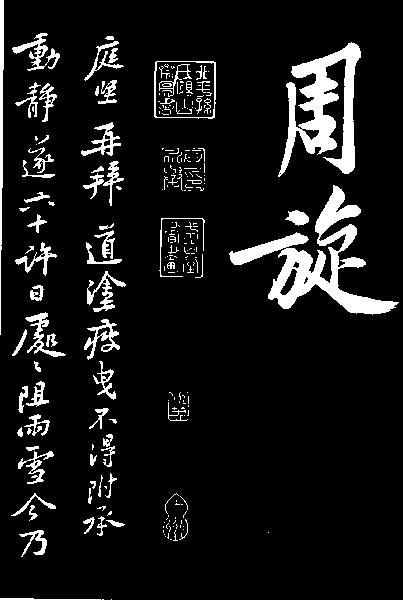 周旋
庭坚再拜道塗疲曳不得附承
動靜遂六十許日處〻阻雨雪今乃